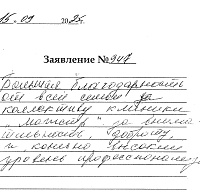 15.09 2025
Заявление № 947
Большая благодарность
от всей семьи за
коллективу клиники
"Магнит" за внима-
тельность, доброту,
и конечно высокий
уровень профессионализ